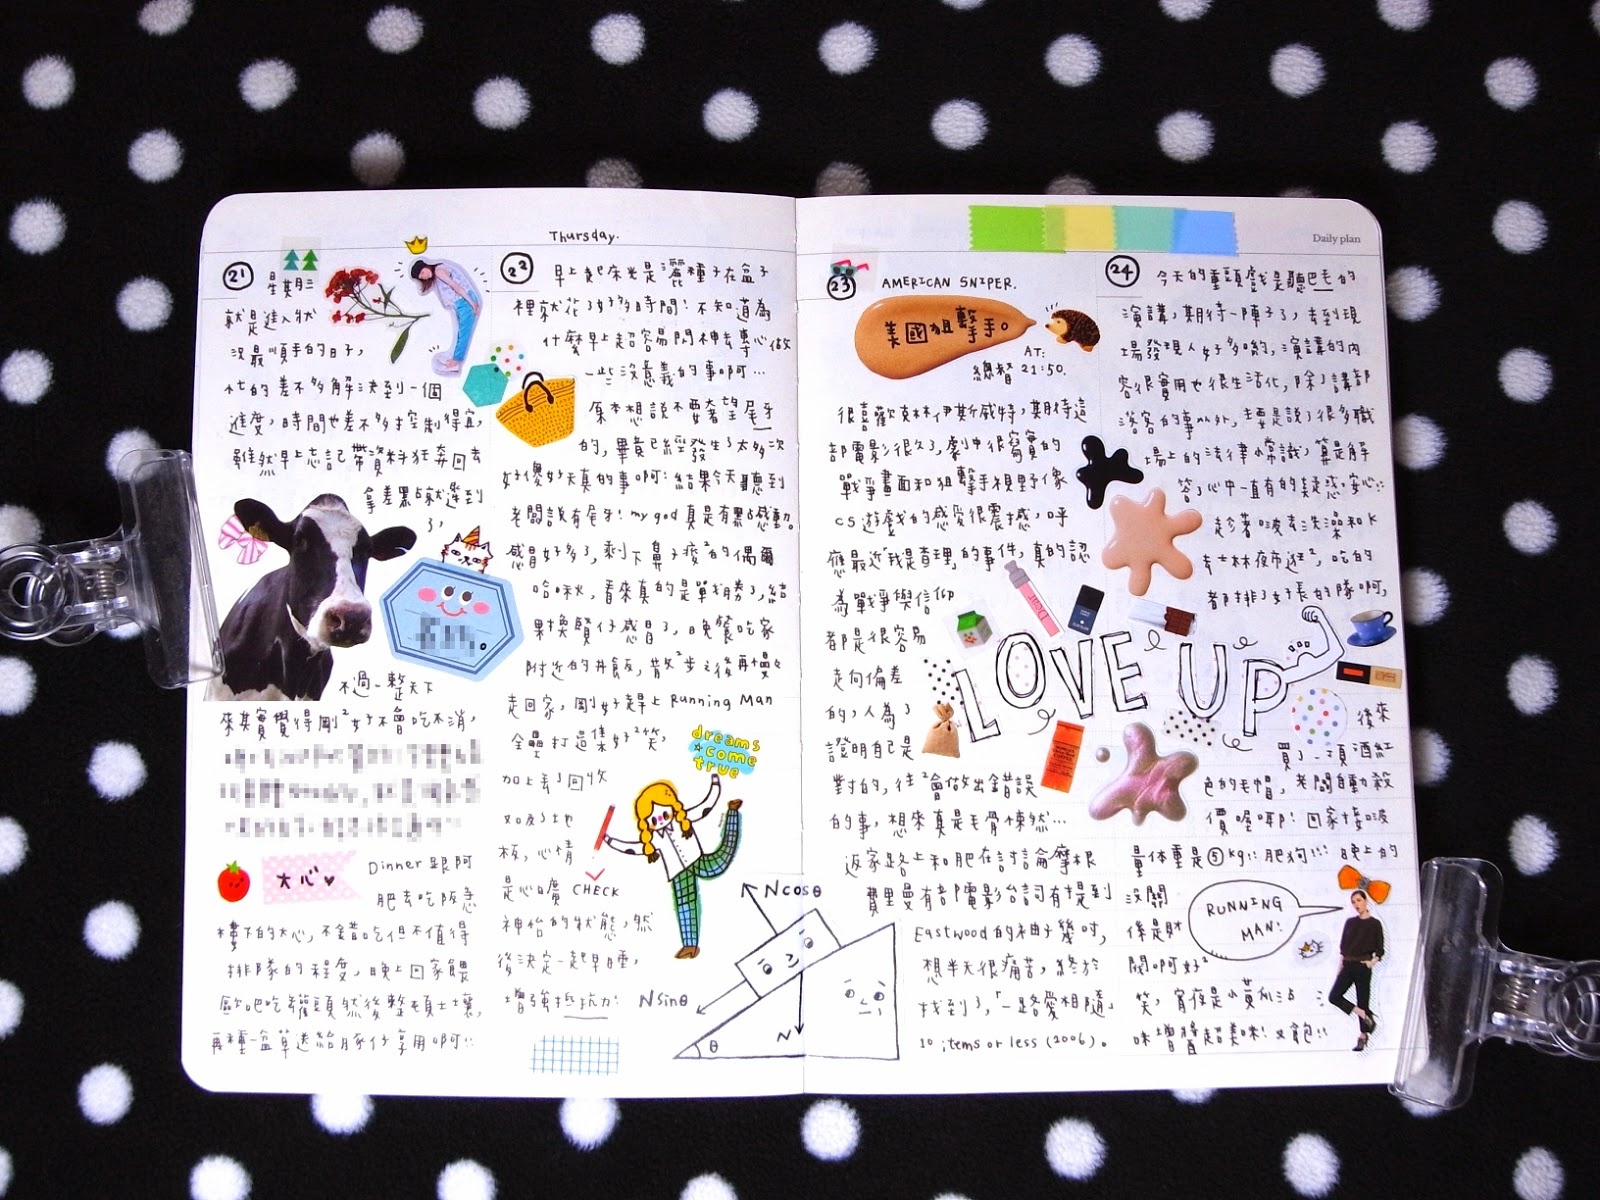 Thursday.
Daily plan
21
星期三
就是進入狀
況最順手的日子,
忙的差不多解決到一個
進度,時間也差不多控制得宜,
雖然早上忘記帶資料狂奔回去
拿差點就遲到
了,
不過一整天下
來其實覺得剛²好不會吃不消,
大心♥
Dinner跟阿
肥去吃阪急
樓下的大心,不錯吃但不值得
排隊的程度,晚上回家餵
歐吧吃罐頭然後整頓土壤,
再種一盆草送給豚仔享用啊!!
22
早上起床光是灑種子在盆子
裡就花了好多時間!不知道為
什麼早上超容易閃神去專心做
一些沒意義的事啊…
原本想說不要奢望尾牙
的,畢竟已經發生了太多次
好傻好天真的事啊!結果今天聽到
老闆說有尾牙!my god真是有點感動。
感冒好多了,剩下鼻子癢²的偶爾
哈啾,看來真的是戰勝了,結
果換贊仔感冒了,晚餐吃家
附近的丼飯,散²步之後再慢々
走回家,剛好趕上Running Man
全疊打這集好²笑,
加上丟了回收
又收了土地
板,心情
是心曠
神怡的狀態,然
後決定一起早睡,
增強抵抗力!
dreams
come
true
CHECK
Ncosθ
Nsinθ
N
θ
23
AMERICAN SNIPER.
美國狙擊手。
AT:
總督 21:50.
很喜歡克林伊斯威特,期待這
部電影很久了,劇中很寫實的
戰爭畫面和狙擊手視野像
CS遊戲的感覺很震撼,呼
應最近"我是查理"的事件,真的認
為戰爭與信仰
都是很容易
走向偏差
的,人為了
證明自己是
對的,往²會做出錯誤
的事,想來真是毛骨悚然…
返家路上和肥在討論摩根
費里曼有部電影台詞有提到
Eastwood的柚子幾吋,
想半天很痛苦,終於
找到了,「一路愛相隨」
10 items or less (2006)。
LOVE UP
24
今天的重頭戲是聽巴毛的
演講,期待一陣子了,去到現
場發現人好多喲,演講的內
容很實用也很生活化,除了講部
落客的事以外,主要是說了很多職
場上的法律小常識,算是解
答了心中一直有的疑惑,安心!!
趁著啵去洗澡和K
去士林夜市逛²,吃的
都排了好長的隊啊,
後來
買了一頂酒紅
色的毛帽,老闆自動殺
價喔耶!回家接啵
量體重是⑤kg!!肥狗!!! 晚上的
沒關
係是財
閥啊好²
笑,宵夜是小黃瓜沾
味增醬超美味!又飽!!
RUNNING
MAN!